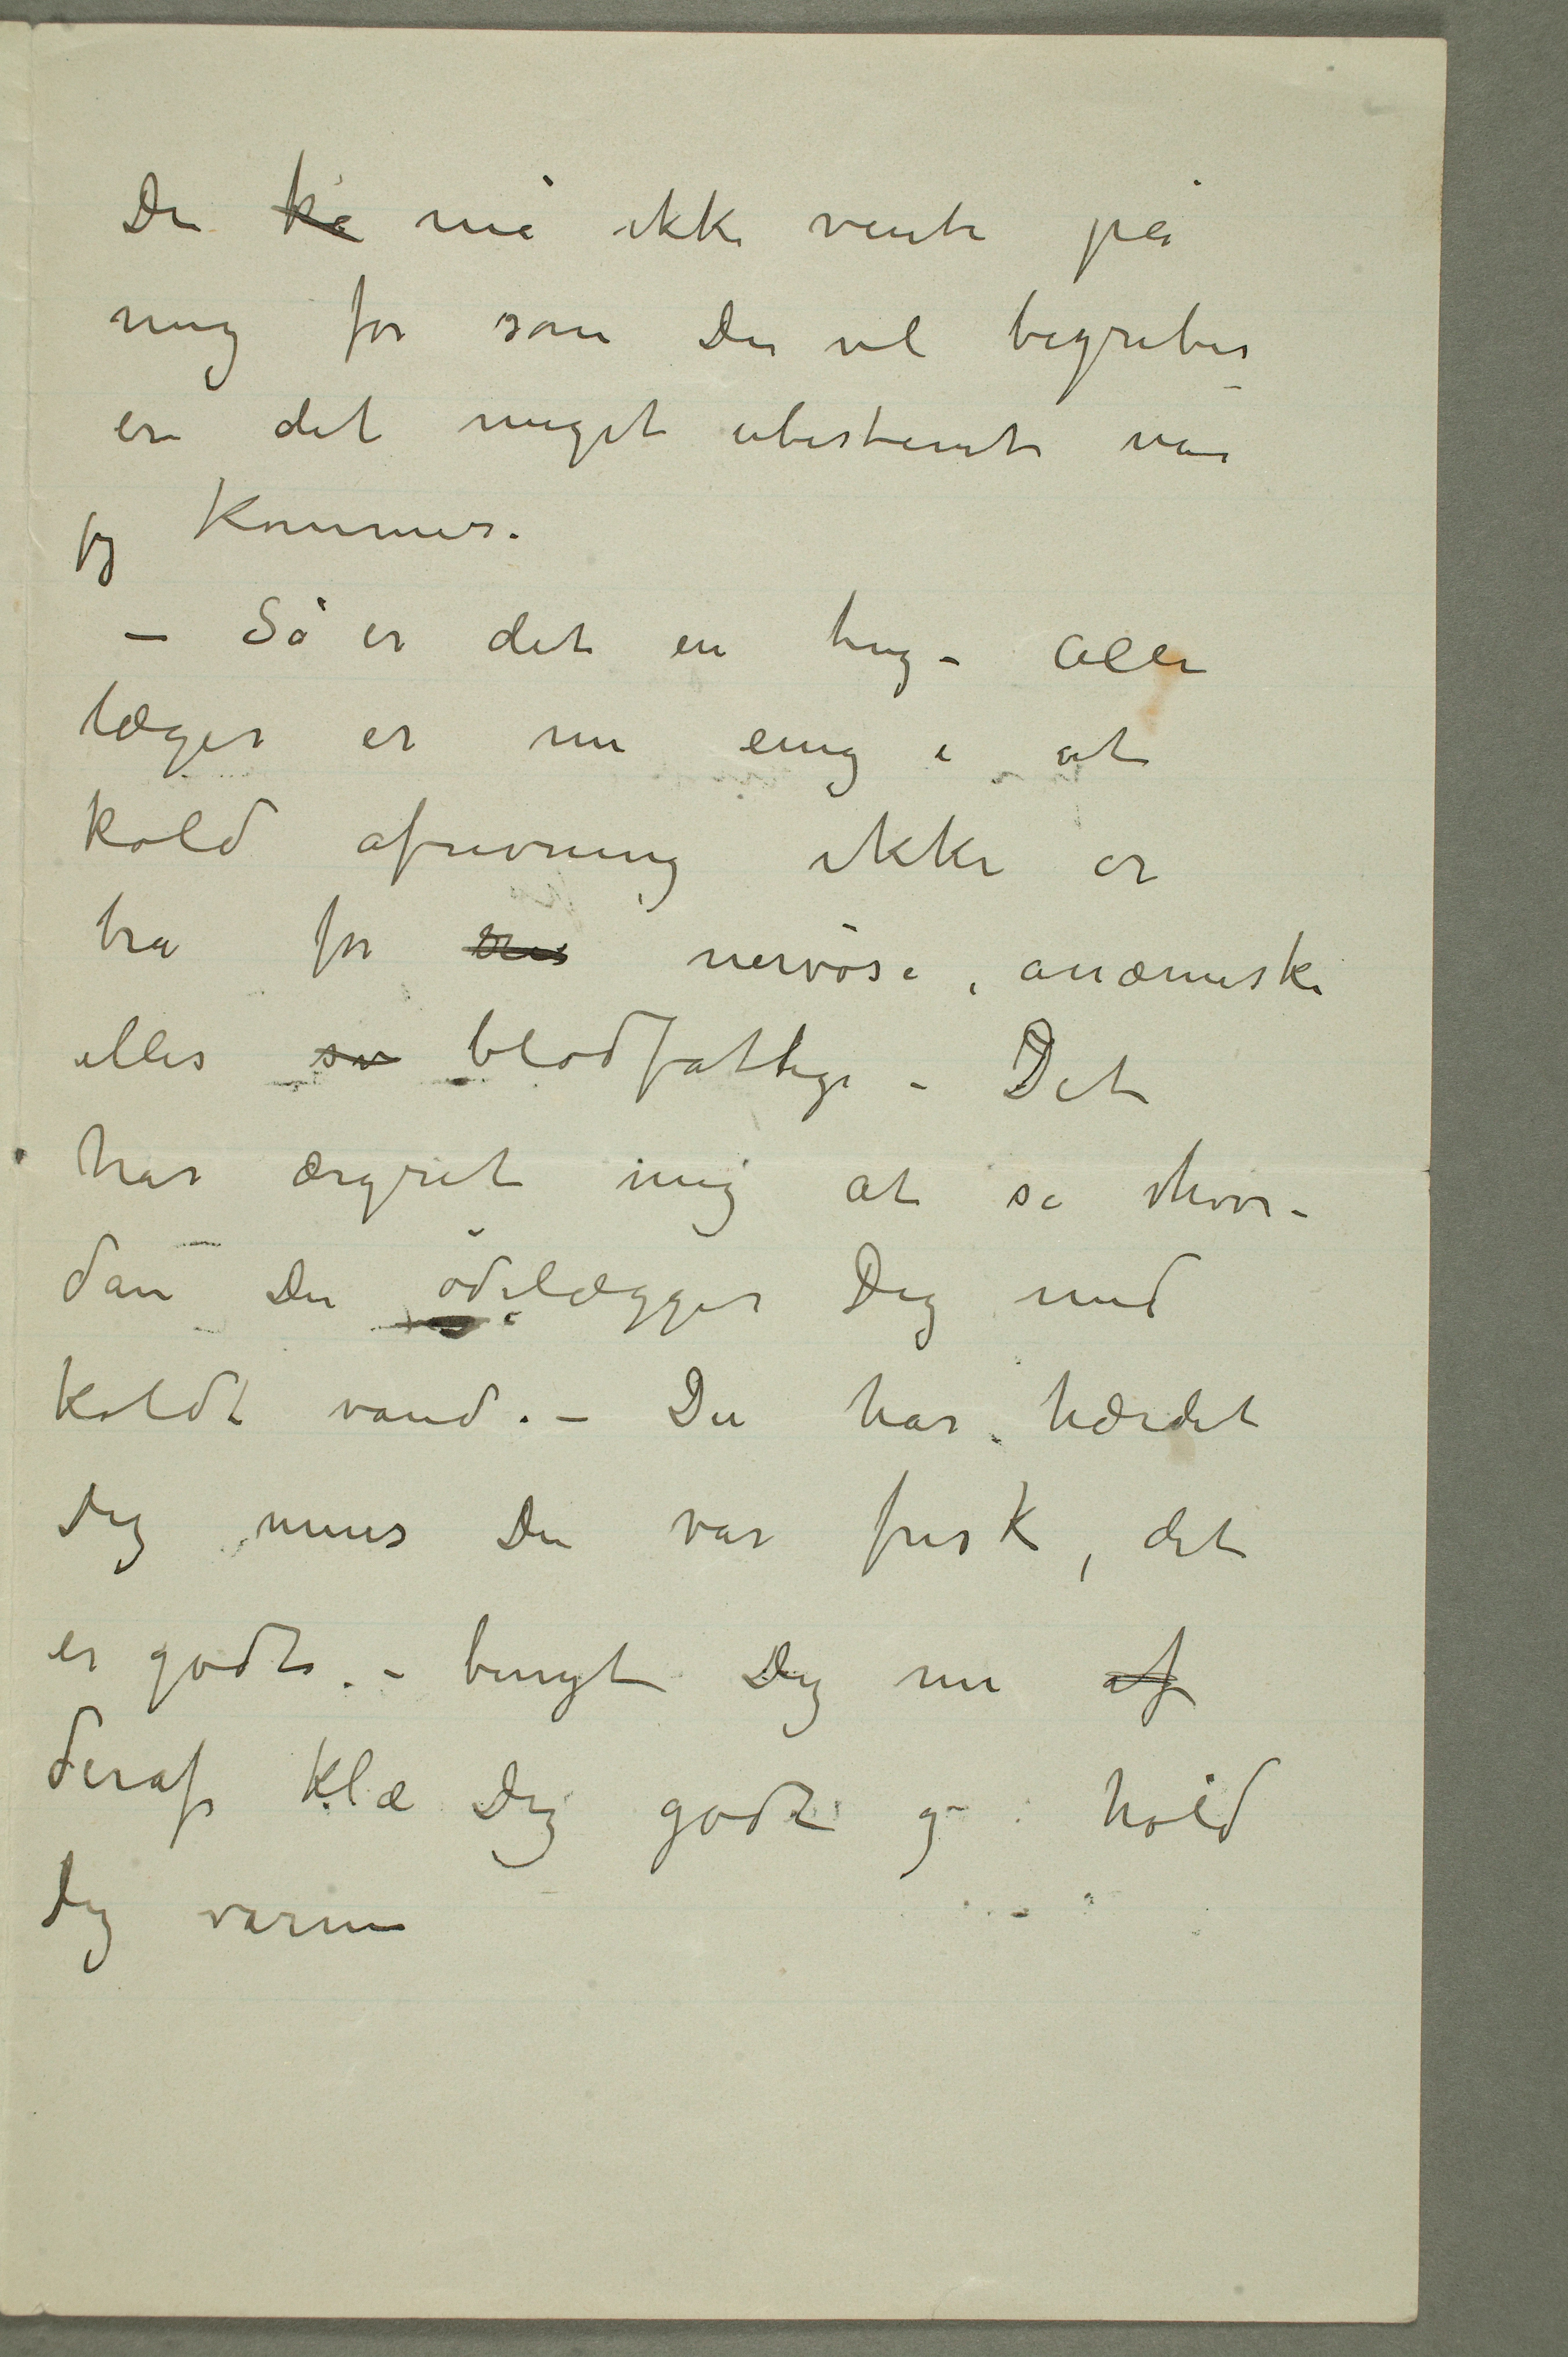 Du ka må ikke vente på
mig for som Du vel begriber
er det meget ubestemt når
jeg kommer.
– Så er det en ting – Alle
læger er nu enig i at
kold afrivning ikke er
bra for nervöse, anæmiske
eller sv blodfattige – Det
har ærgret mig at se hvor-
dan Du ödelægger Dig med
koldt vand. – Du har hærdet
Dig mens Du var frisk, det
er godt. – benyt Dig nu af
deraf klæ Dig godt og hold
Dig varm